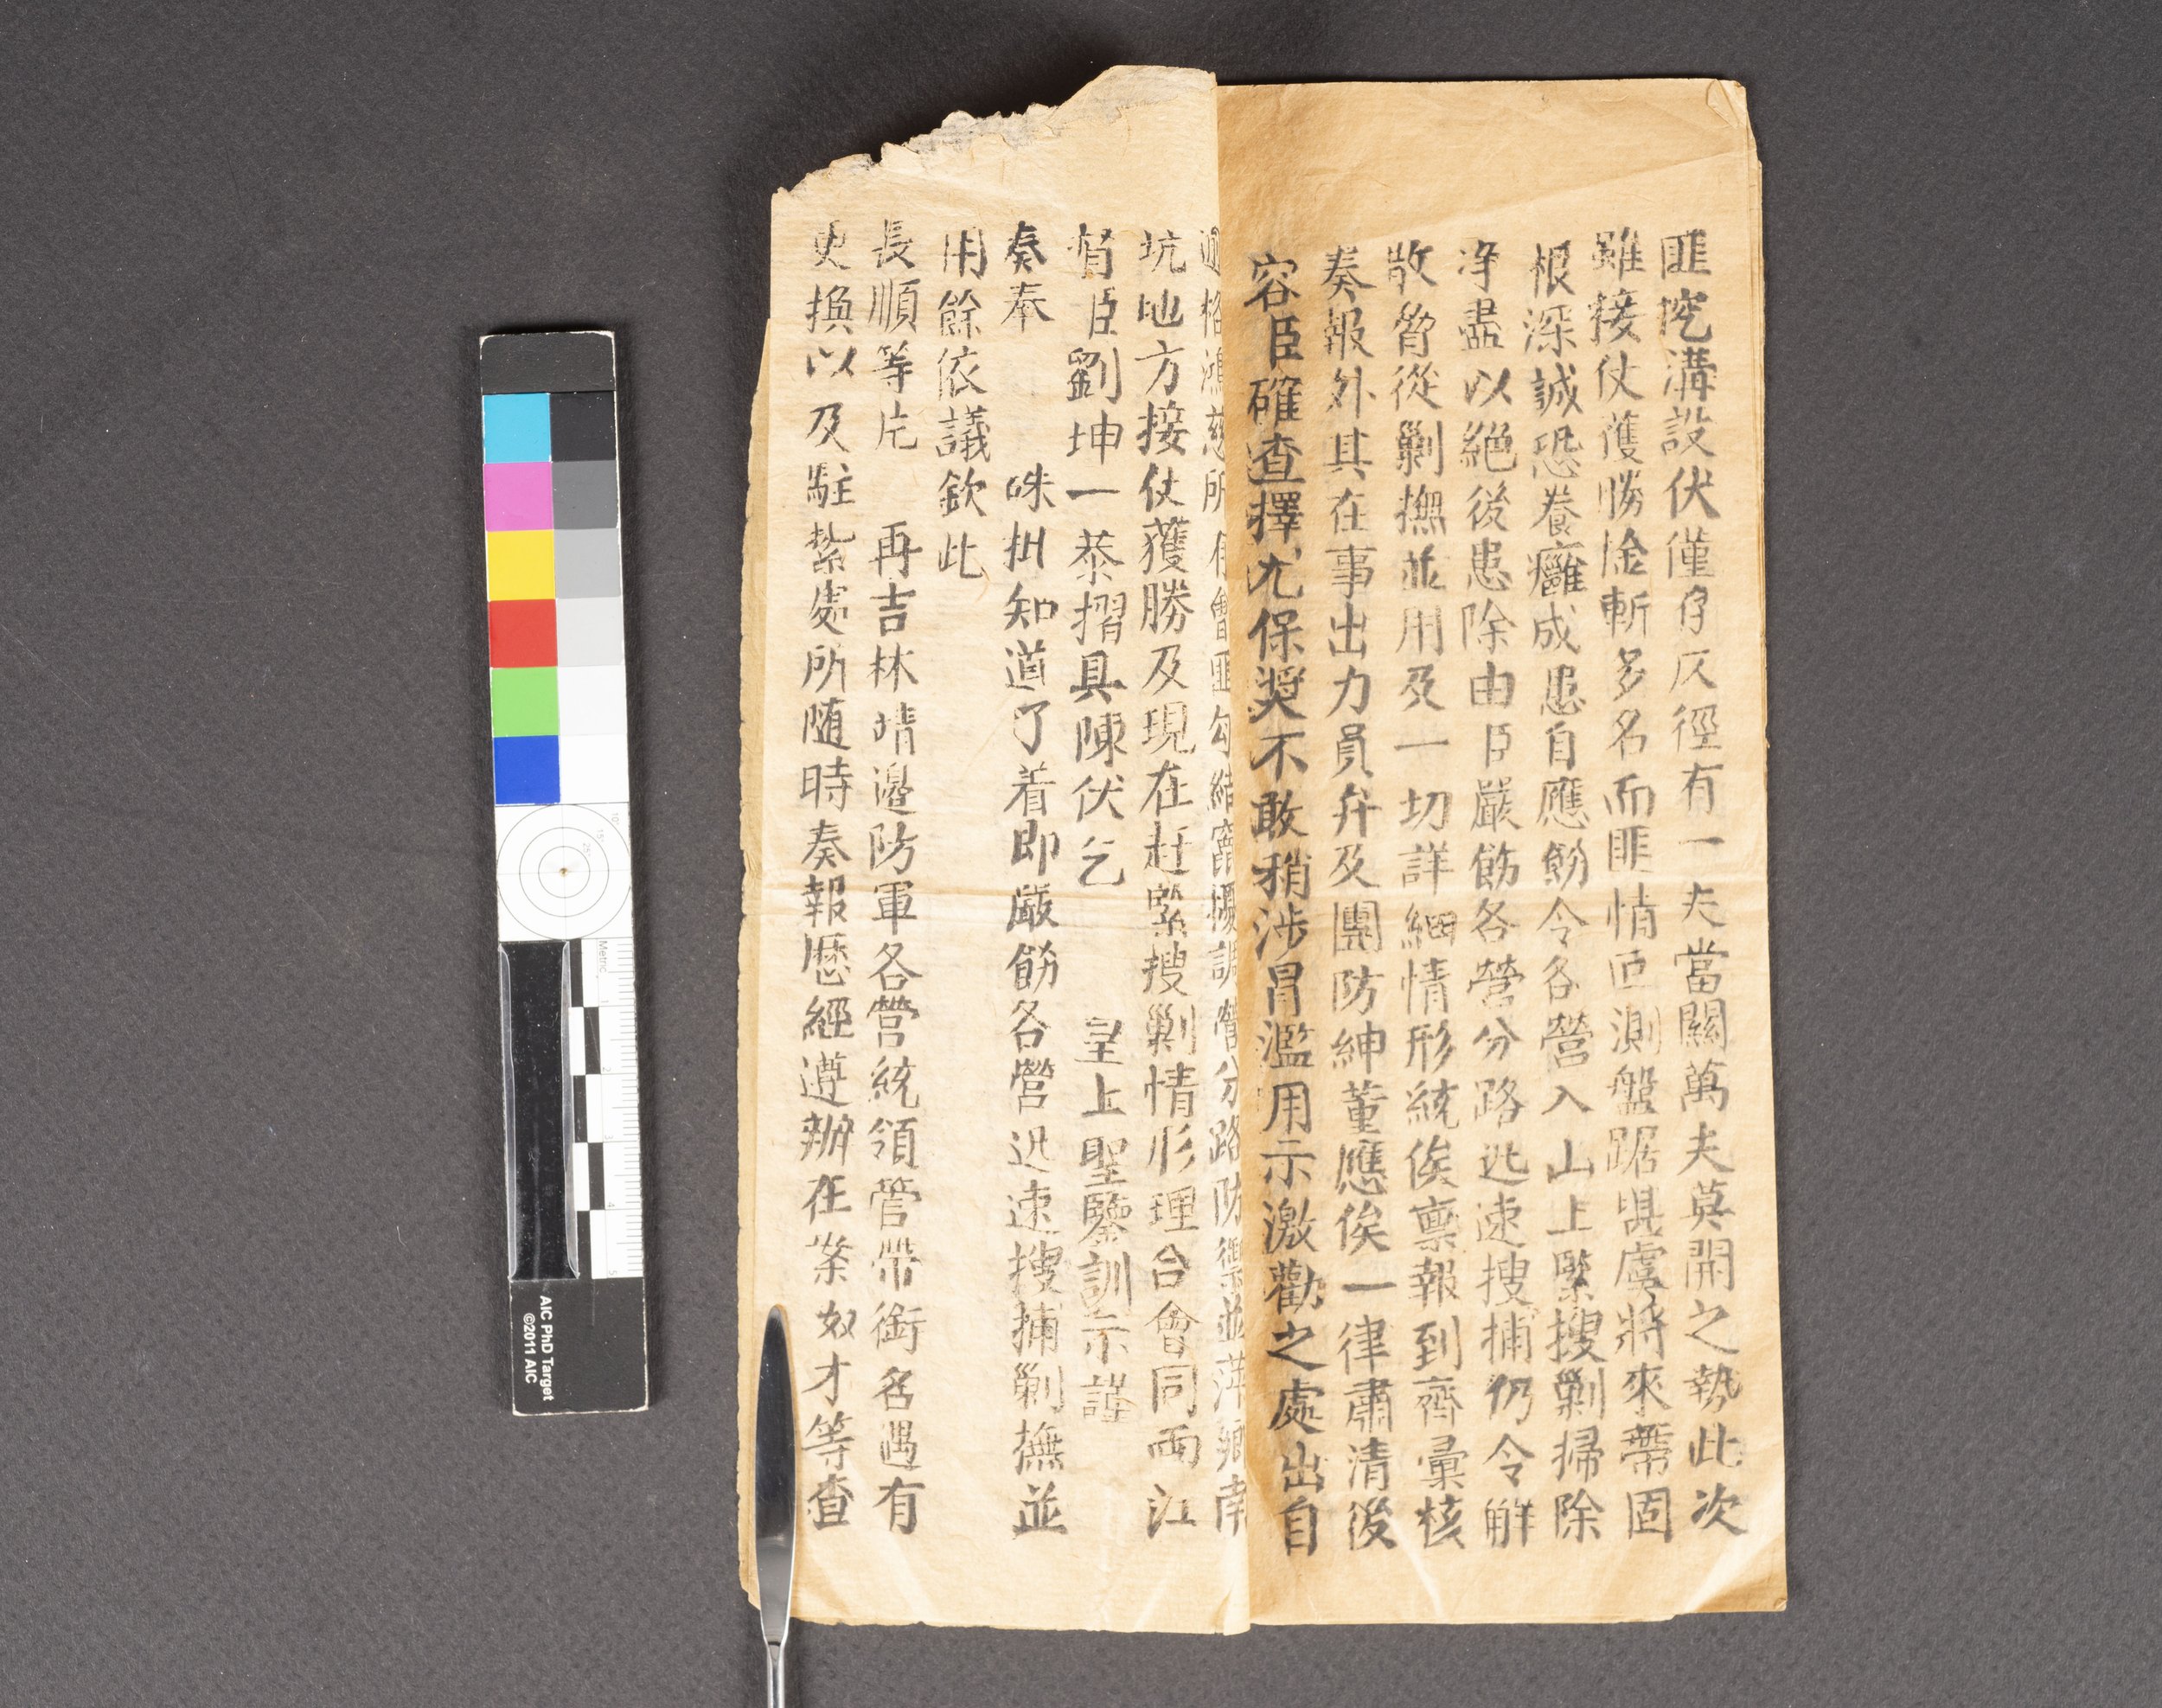 匪挖溝設伏僅存仄徑有一夫當關萬夫莫開之勢此次
雖接仗獲勝僉斬多名而匪情叵測盤踞嵎虞將來蒂固
根深誠恐養癰成患自應飭令各營入山上緊搜剿掃除
净盡以絕後患除由臣嚴飭各營分路迅速搜捕仍令解
散脅從剿撫並用及一切詳細情形統俟稟報到齊彙核
奏報外其在事出力員弁及團防紳董應俟一律肅清後
容臣確查擇尤保奨不敢稍涉冒濫用示激勸之處出自
鴻慈所有會匪勾結竄擾調營分路防禦並萍鄉南
坑地方接仗獲勝及現在赶緊搜剿情形理合會同両江
督臣劉坤一恭摺具陳伏乞 皇上聖鑒訓示謹
奏奉 硃批知道了着即嚴飭各營迅速搜捕剿撫並
用餘依議欽此
長順等片 再吉林靖邉防軍各營統領管帶銜名遇有
更換以及駐紮處所随時奏報歷經遵辦在案奴才等查
AIC PhD Target
©2011 AIC
Metric
1
2
3
4
5